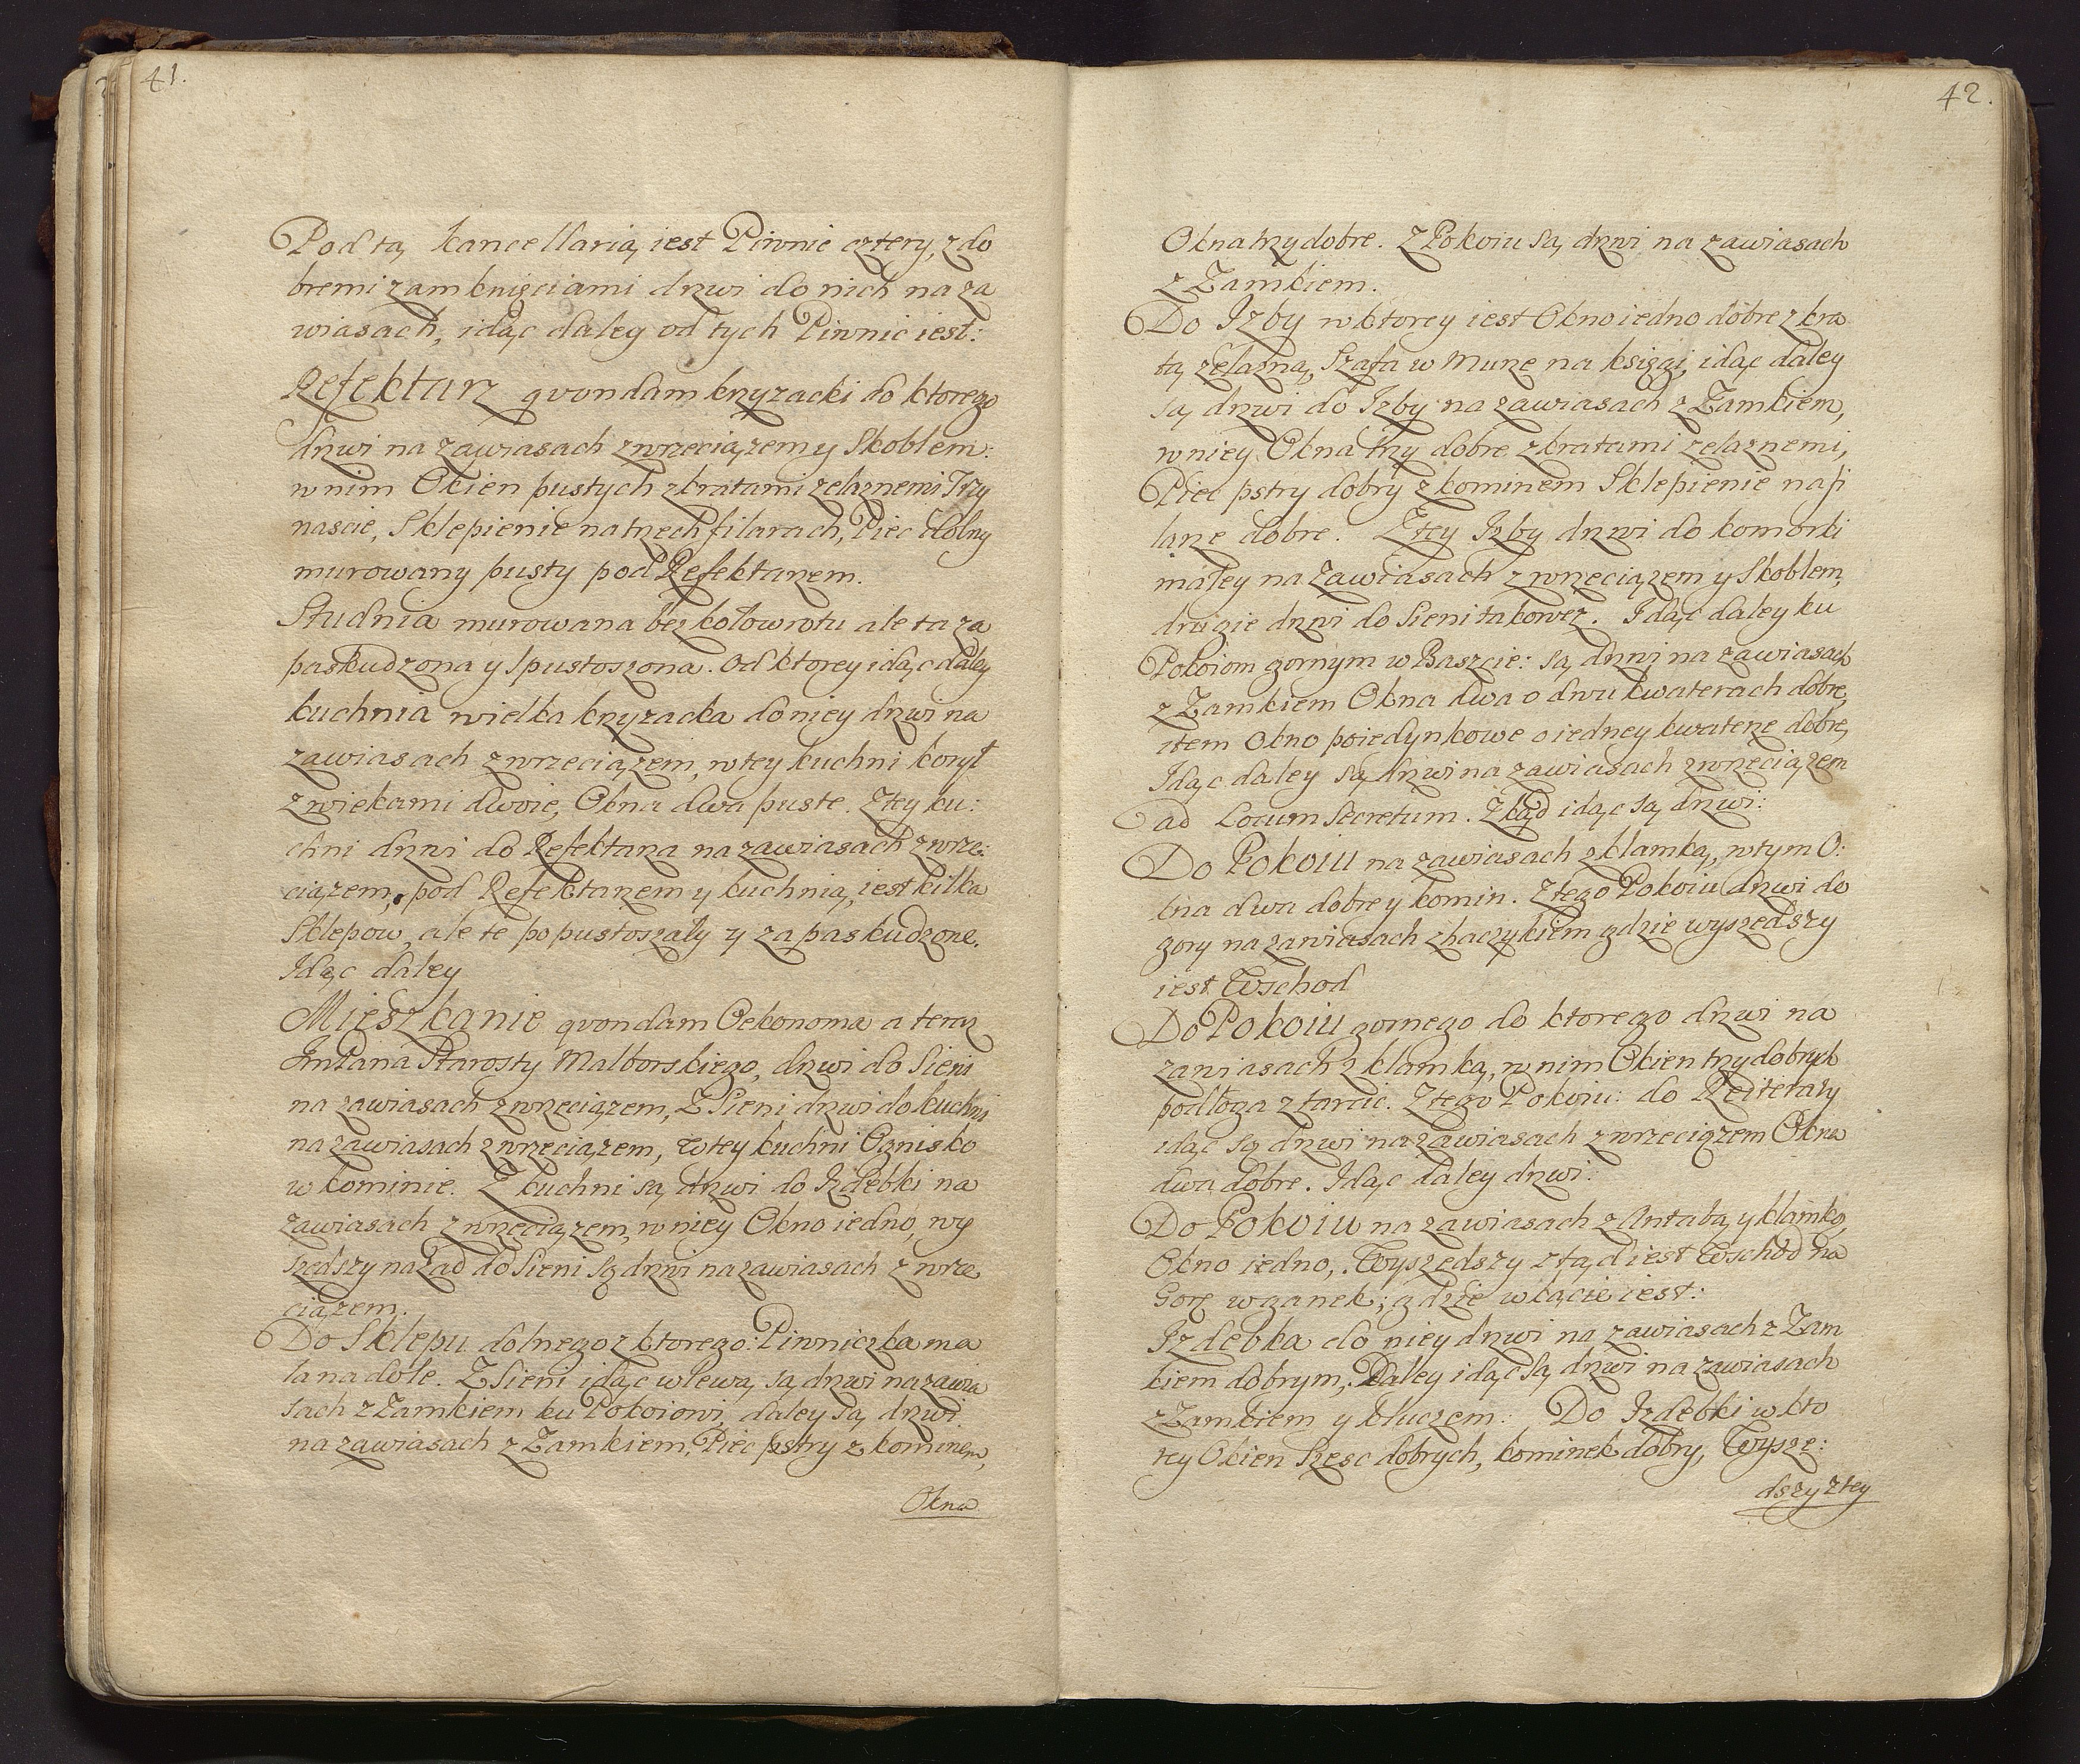 41.
Pod tą kancellarią iest Piwnic cztery, z do
bremi zamknięciami drzwi do nich na za
wiasach, idąc daley od tych Piwnic iest:
Refektarz qvondam krzyzacki do ktorego
drzwi na zawiasach z wrzeciązem y Skoblem:
w nim Okien pustych z kratami zelaznemi Trzy
nascie, Sklepienie na trzech filarach, Piec dolny
murowany pusty pod Refektarzem.
Studnia murowana bez kołowrotu ale ta za
paskudzona y spustoszona. Od ktorey idąc daley
kuchnia wielka krzyzacka do niey drzwi na
zawiasach z wrzeciązem, w tey kuchni koryt
z wiekami dwoie, Okna dwa puste. Z tey ku:
chni drzwi do Refektarza na zawiasach z wrze:
ciązem, pod Refektarzem y kuchnią, iest kilka
Sklepow, ale te popustoszały y zapaskudzone.
Idąc daley
Mieszkanie qvondam Oekonoma a teraz
ImPana Starosty Malborskiego, drzwi do Sieni
na zawiasach z wrzeciązem, Z Sieni drzwi do kuchni
na zawiasach z wrzeciązem, w tey kuchni Ognisko
w kominie. Z kuchni są drzwi do Izdebki na
zawiasach z wrzeciązem, w niey Okno iedno, wy
szedszy nazad do Sieni są drzwi na zawiasach z wrze
ciązem.
Do Sklepu dolnego z ktorego: Piwniczka ma
la na dole. Z Sieni idąc w lewą są drzwi na zawia
sach z Zamkiem ku Pokoiowi, daley są drzwi
na zawiasach z Zamkiem, Piec pstry z kominem,
Okna
42.
Okna trzy dobre. Z Pokoiu są drzwi na zawiasach
z Zamkiem.
Do Izby w ktorey iest Okno iedno dobre z kra
tą zelazną, Szafa w Murze na księgi, idąc daley
są drzwi do Izby na zawiasach z Zamkiem,
w niey Okna trzy dobre z kratami zelaznemi,
Piec pstry dobry z kominem Sklepienie na fi
larze dobre. Z tey Izby drzwi do komorki
małey na Zawiasach z wrzeciązem y Skoblem,
drugie drzwi do Sieni takowez. Idąc daley ku
Pokoiom gornym w Baszcie: są drzwi na zawiasach
z Zamkiem Okna dwa o dwu kwaterach dobre,
item Okno poiedynkowe o iedney kwaterze dobre,
Idąc daley są drzwi na zawiasach z wrzeciązem
ad Locum Secretum. Zkąd idąc są drzwi:
Do Pokoiu na zawiasach z klamką, w tym O:
kna dwa dobre y komin. Z tego Pokoiu drzwi do
gory na zawiasach z haczykiem gdzie wyszedszy
iest Wschod
Do Pokoiu gornego do ktorego drzwi na
zawiasach z klamką, w nim Okien trzy dobrych
podłoga z tarcic. Z tego Pokoiu: do Reiterały
idąc są drzwi na zawiasach z wrzeciązem Okna
dwa dobre. Idąc daley drzwi:
Do Pokoiu na zawiasach z Antabą y klamką,
Okno iedno, Wyszedszy z tąd iest Wschod na
Gorę w ganek; gdzie w kącie iest:
Izdebka do niey drzwi na zawiasach z Zam
kiem dobrym, Daley idąc są drzwi na zawiasach
z Zamkiem y kluczem: Do Izdebki w kto
rey Okien Szesc dobrych, kominek dobry, Wysze:
dszy z tey